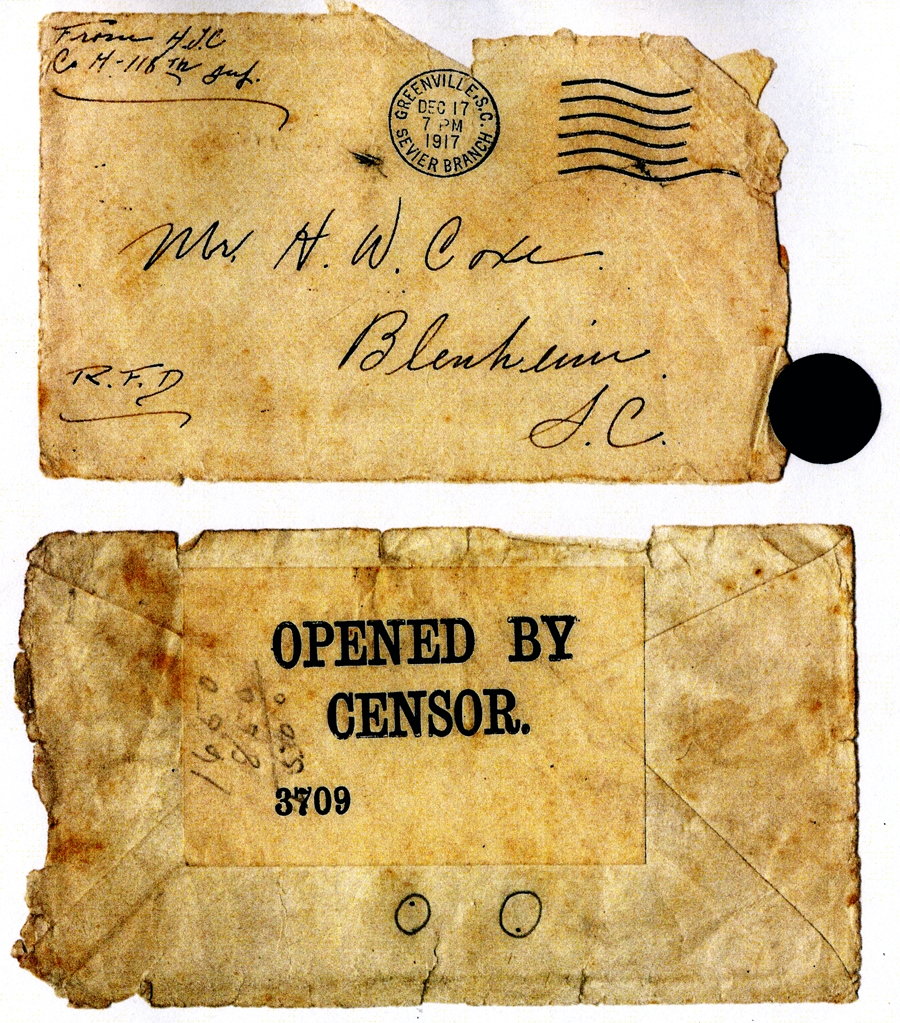 From H.J.C
Co H-118th Inf.
GREENVILLE, S.C.
DEC 17
7 PM
1917
SEVIER BRANCH
Mr. H. W. Coxe.
Blenheim.
R.F.D
S.C.
OPENED BY
CENSOR.
3709